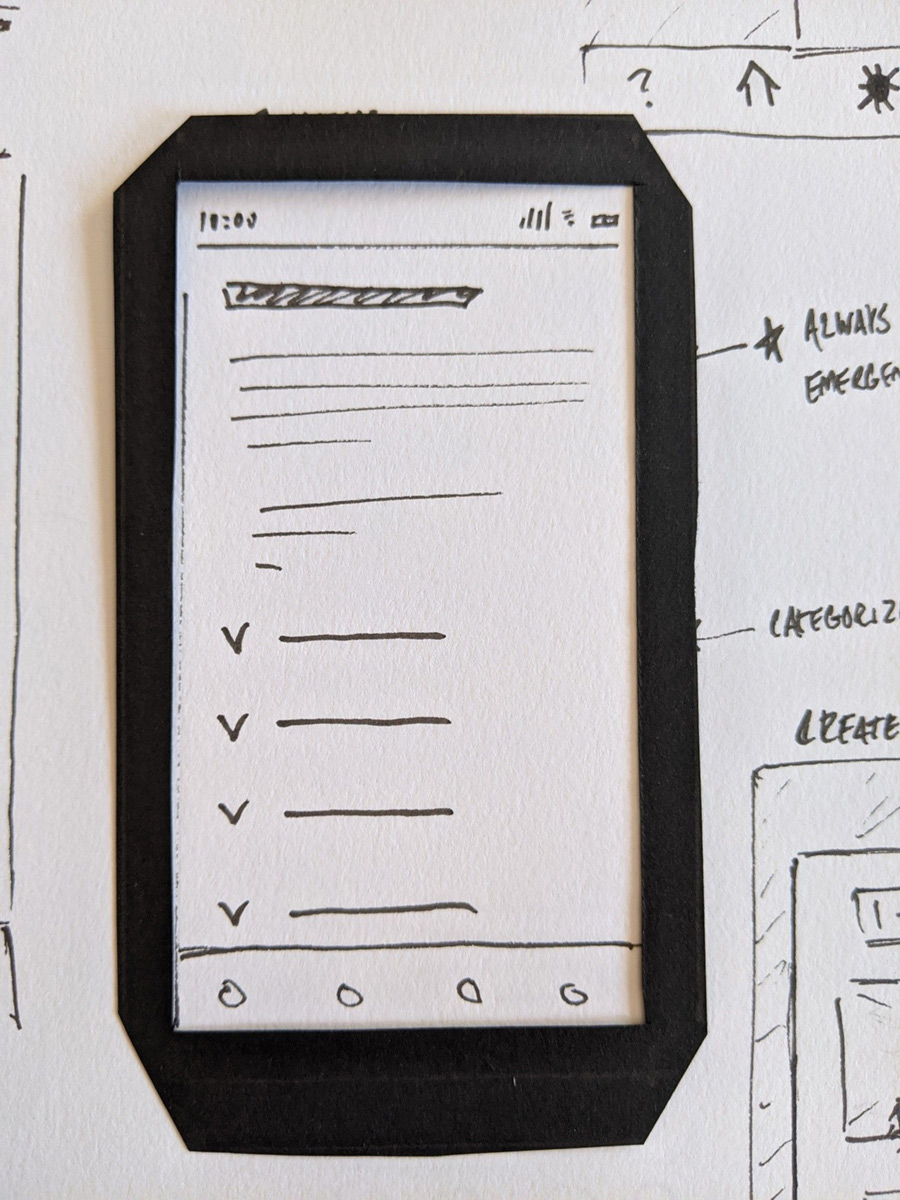 ?
10:00
ALWAYS
EMERGEN
CATEGORIZ
CREATE